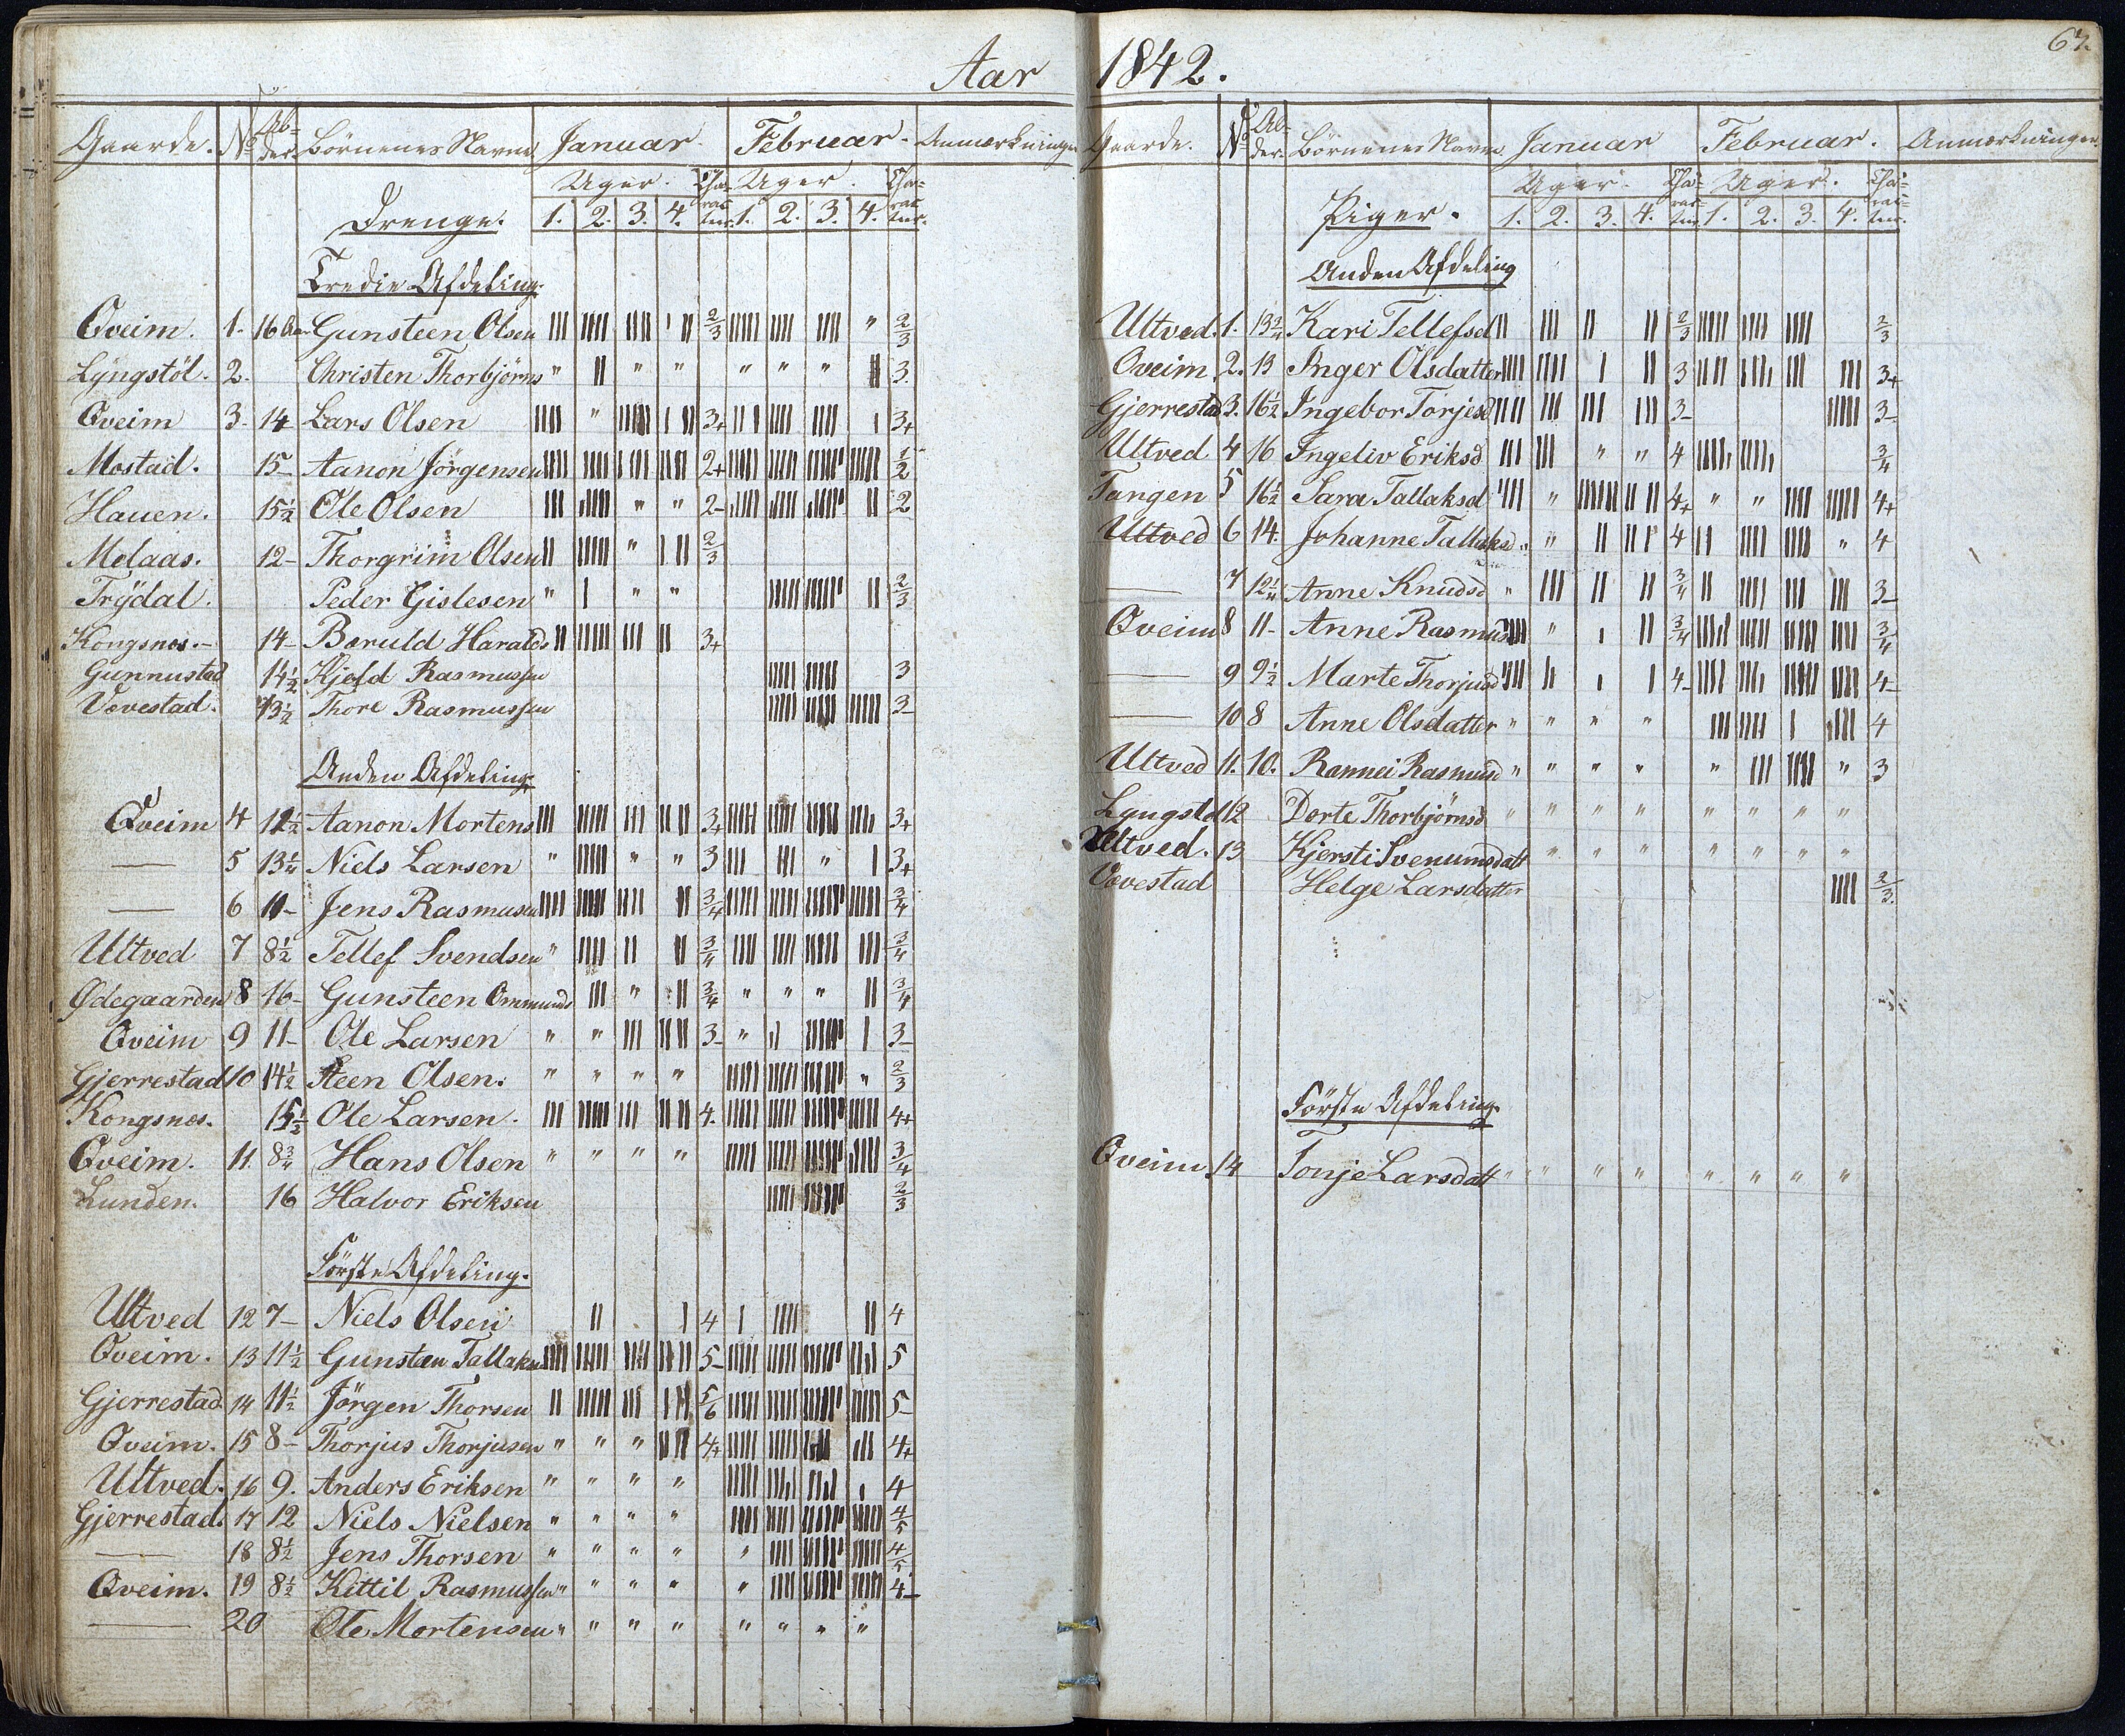 Aar 1842.
67.
Gaarde. No Alder Börnenes Navne Januar. Februar. Anmærkninger
Uger. Charakter. Uger. Charakter.
Drenge. 1. 2. 3. 4. 1. 2. 3. 4.
Tredie Afdeling.
Qveim. 1. 16 Aar Gunsteen Olsen 2/3 " 2/3
Lyngstöl. 2. Christen Thorbjörns " " " " " " 3.
Qveim 3. 14 Lars Olsen " 3+ 3+
Mostad. 15- Aanon Jörgensen 2+ 1/2
Hauen. 15 1/2 Ole Olsen " " 2- 2
Molaas. 12- Thorgrim Olsen " 2/3
Trÿdal. Peder Gislesen " " " 2/3
Kongsnes.- 14- Baruld Haralds 3+
Gunnustad 14 1/2 Kjeld Rasmussen 3
Vævestad. 13 1/2 Thore Rasmussen 3-
Anden Afdeling.
Qveim 4 12 1/2 Aanon Mortens 3+ 3+
— 5 13 1/4 Niels Larsen " " " 3 " 3+
— 6 11- Jens Rasmusen 3/4 3/4
Ultved 7 8 1/2 Tellef Svendsen " 3/4 3/4
Ødegaarden 8 16- Gunsteen Ommunds " 3/4 " " " 3/4
Qveim 9 11- Ole Larsen " " 3- " 3-
Gjerrestad 10 14 1/2 Steen Olsen. " " " " " 2/3
Kongsnes. 15 1/2 Ole Larsen. 4. 4+
Qveim. 11. 8 3/4 Hans Olsen " " " " 3/4
Lunden. 16 Halvor Eriksen 2/3
Förste Afdeling.
Ultved 12 7- Niels Olsen 4 4
Qveim. 13 11 1/2 Gunstæn Tallaksen 5- 5
Gjerrestad 14 11 1/2 Jörgen Thorsen 5/6 5-
Qveim. 15 8- Thorjus Thorjusen " " " 4+ 4+
Ultved. 16 9. Anders Eriksen " " " " 4
Gjerrestad. 17 12 Niels Nielsen " " " " 4/5
— 18 8 1/2 Jens Thorsen " " " " " 4/5
Qveim. 19 8 1/2 Kittil Rasmussen " " " " " 4-
— 20 Ole Mortensen " " " " " " " "
Gaarde. No Alder. Börnenes Navne Januar Februar. Anmærkninger
Uger. Charakter. Uger. Charakter.
Piger. 1. 2. 3. 4. 1. 2. 3. 4.
Anden Afdeling
Ultved. 1. 13 3/4 Kari Tellefsd 2/3 2/3
Qveim. 2. 13 Inger Olsdatter 3 3+
Gjerrestad 3. 16 1/2 Ingebor Torjesd 3- 3-
Ultved 4 16 Ingeliv Eriksd " " 4 3/4
Tangen 5 16 1/2 Sara Tallaksd " 4+ " " 4+
Ultved 6 14. Johanne Tallaksd " " 4 " 4
— 7 12 1/4 Anne Knudsd " 3/4 3-
Qveim 8 11- Anne Rasmusd " 3/4 3/4
— 9 9 1/2 Marte Thorjusd 4- 4-
— 10 8 Anne Olsdatter " " " " 4
Ultved 11. 10. Rannei Rasmusd " " " " " " 3
Lyngstöl 12 Dorte Thorbjörnsd " " " " " " " "
Ultved. 13 Kjersti Svenumsdatt " " " " " " "
Vævestad Helge Larsdatter 2/3.
Förste Afdeling.
Qveim 14 Tonje Larsdatt " " " " " " " "